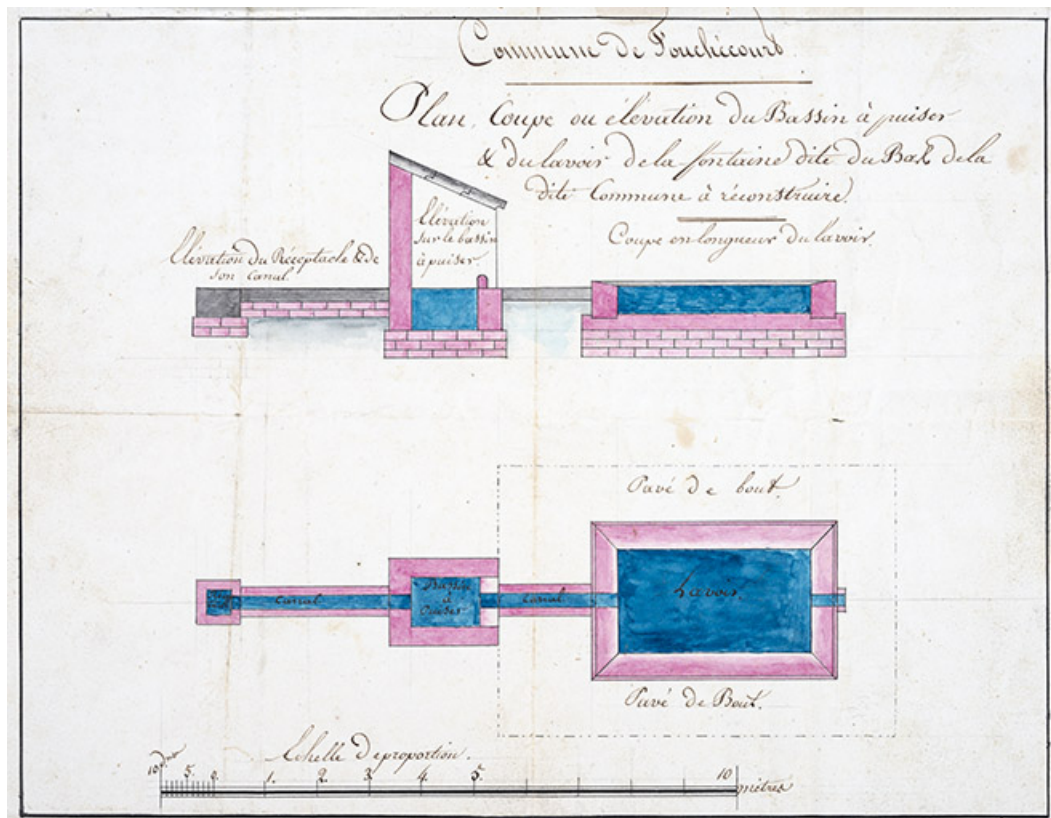 Commune de Fouchécourt
Plan, Coupe ou élévation du Bassin à puiser
& du lavoir de la fontaine dite du Bas de la
dite Commune à réconstruire.
Coupe en longueur du lavoir.
Elévation du Réceptacle & de
son Canal.
Elévation
sur le bassin
à puiser.
Pavé de bout.
Canal
Bassin
à
Puiser
Canal
Lavoir.
Pavé de Bout.
Echelle de proportion.
10 5. 0. 1. 2. 3. 4. 5. 10 mètres